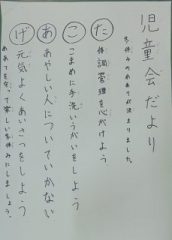 児童会だより
冬休みのめあてが決まりました。
た 体調管理を心がけよう
こ こまめに手洗いうがいをしよう
あ あやしい人についていかない
げ 元気よくあいさつをしよう
めあてを守って楽しい冬休みにしましょう。